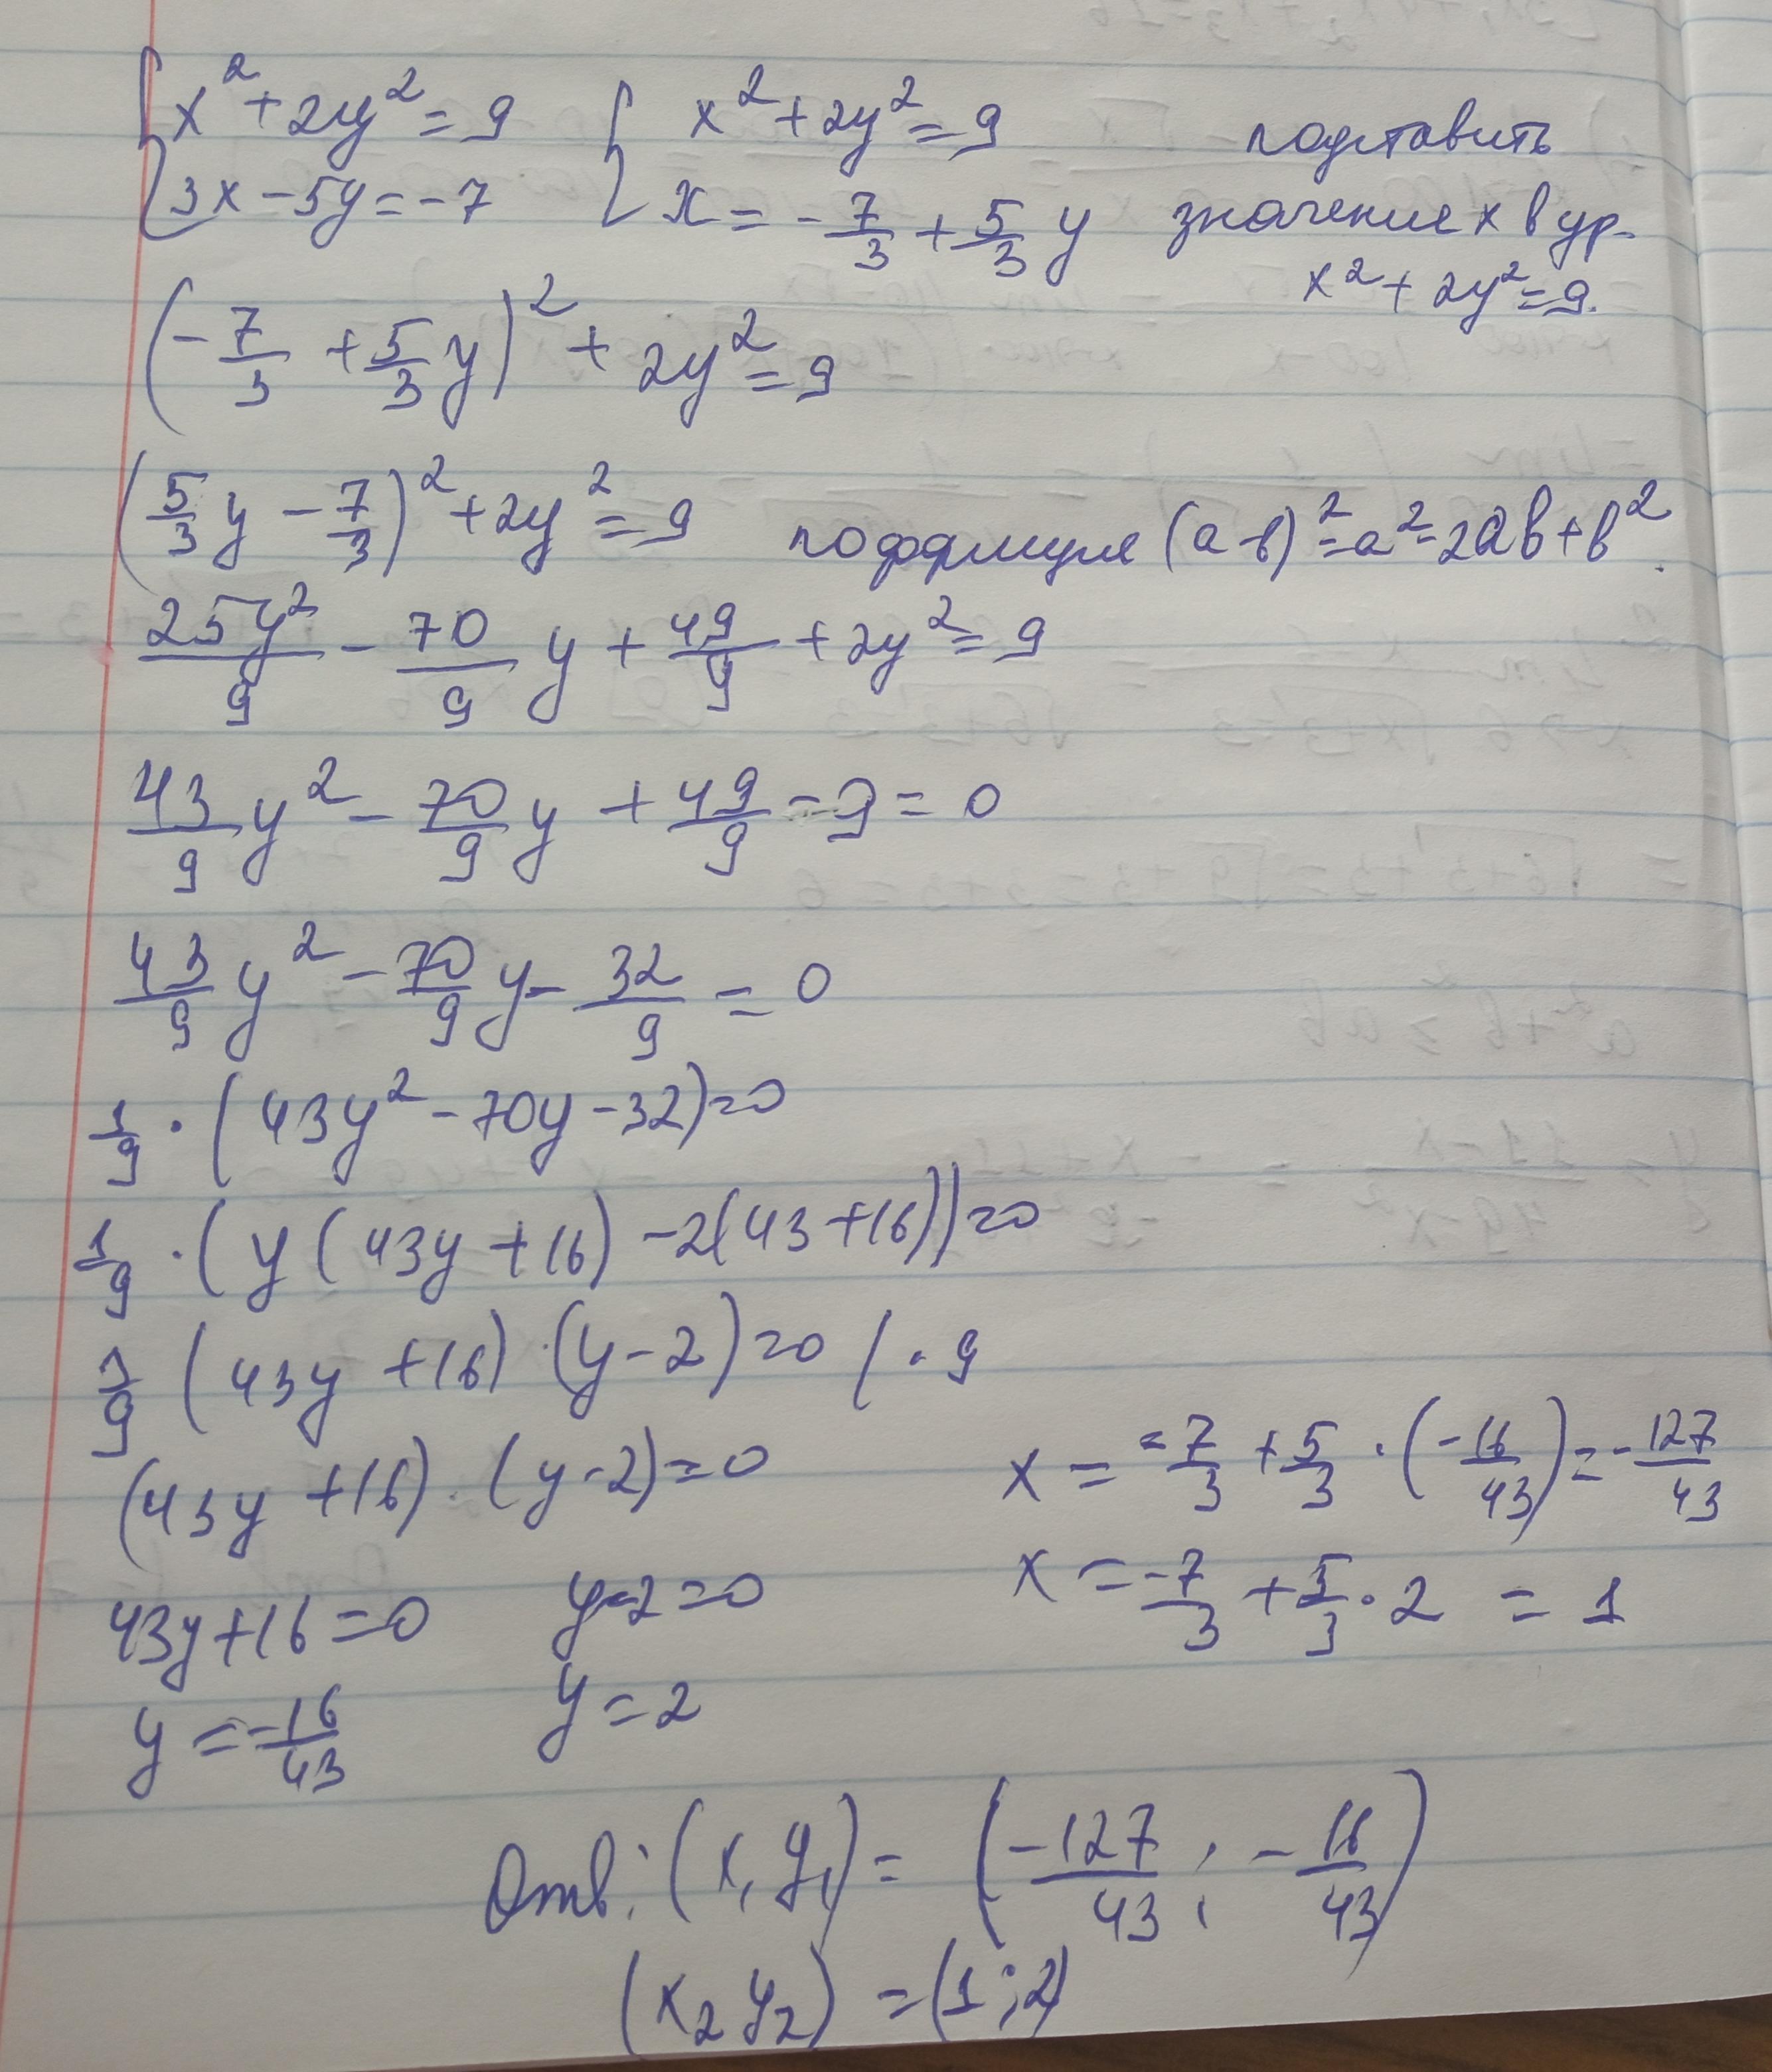 { x² + 2y² = 9 { x² + 2y² = 9 подставить
3x - 5y = -7 x = -7/3 + 5/3 y значение x в ур.
x² + 2y² = 9.
(-7/3 + 5/3 y)² + 2y² = 9
(5/3 y - 7/3)² + 2y² = 9 по формуле (a-b)² = a² - 2ab + b².
25y²/9 - 70/9 y + 49/9 + 2y² = 9
43/9 y² - 70/9 y + 49/9 - 9 = 0
43/9 y² - 70/9 y - 32/9 = 0
1/9 · (43y² - 70y - 32) = 0
1/9 · (y(43y + 16) - 2(43 + 16)) = 0
1/9 (43y + 16) · (y - 2) = 0 / · 9
(43y + 16) · (y - 2) = 0 x = -7/3 + 5/3 · (-16/43) = -127/43
43y + 16 = 0 y - 2 = 0 x = -7/3 + 5/3 · 2 = 1
y = -16/43 y = 2
Отв: (x₁ y₁) = (-127/43 ; -16/43)
(x₂ y₂) = (1 ; 2)